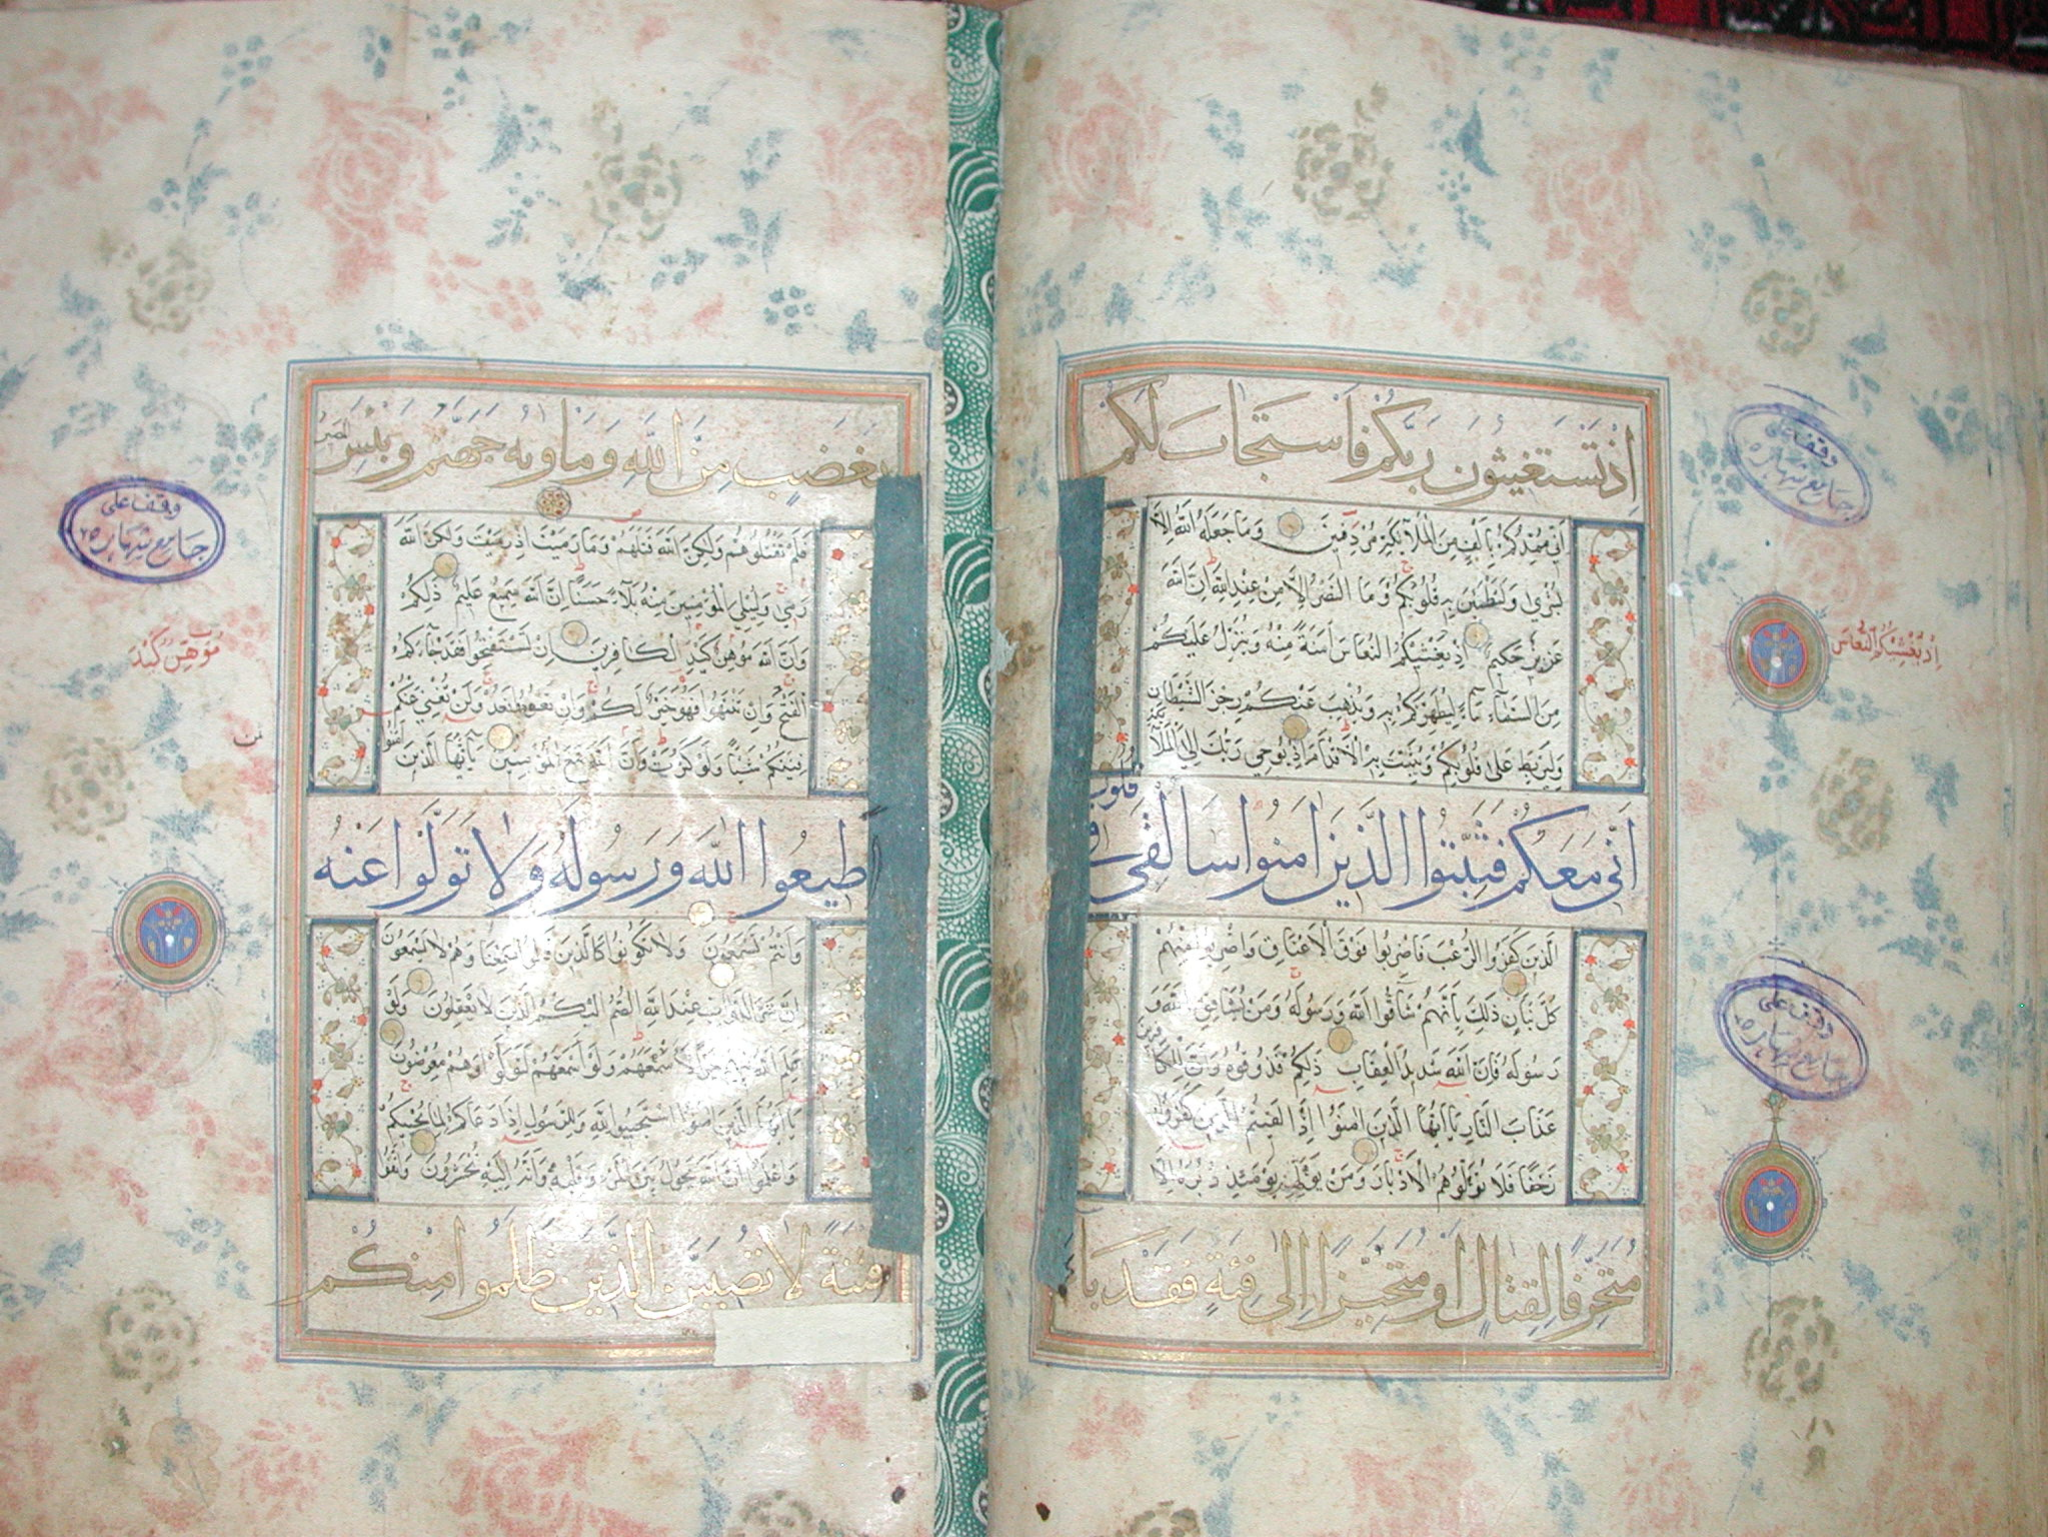 إذ تستغيثون ربكم فاستجاب لكم
أني ممدكم بألف من الملآئكة مردفين وما جعله الله إلا
بشرى ولتطمئن به قلوبكم وما النصر إلا من عند الله إن الله
عزيز حكيم إذ يغشيكم النعاس أمنة منه وينزل عليكم
من السمآء مآء ليطهركم به ويذهب عنكم رجز الشيطان
وليربط على قلوبكم ويثبت به الأقدام إذ يوحي ربك إلى الملآئكة
أني معكم فثبتوا الذين آمنوا سألقي في قلوب
الذين كفروا الرعب فاضربوا فوق الأعناق واضربوا منهم
كل بنان ذلك بأنهم شآقوا الله ورسوله ومن يشاقق الله و
رسوله فإن الله شديد العقاب ذلكم فذوقوه وأن للكافرين
عذاب النار يا أيها الذين آمنوا إذا لقيتم الذين كفروا
زحفا فلا تولوهم الأدبار ومن يولهم يومئذ دبره إلا
متحرفا لقتال أو متحيزا إلى فئة فقد باء
إذ يغشيكم النعاس
وقف على
جامع شهاره
وقف على
جامع شهاره
بغضب من الله ومأويه جهنم وبئس المصير
فلم تقتلوهم ولكن الله قتلهم وما رميت إذ رميت ولكن الله
رمى وليبلي المؤمنين منه بلآء حسنا إن الله سميع عليم ذلكم
وأن الله موهن كيد الكافرين إن تستفتحوا فقد جاءكم
الفتح وإن تنتهوا فهو خير لكم وإن تعودوا نعد ولن تغني عنكم
فئتكم شيئا ولو كثرت وأن الله مع المؤمنين يآيها الذين آمنوا
أطيعوا الله ورسوله ولا تولوا عنه
وأنتم تسمعون ولا تكونوا كالذين قالوا سمعنا وهم لا يسمعون
إن شر الدوآب عند الله الصم البكم الذين لا يعقلون ولو
علم الله فيهم خيرا لأسمعهم ولو أسمعهم لتولوا وهم معرضون
يا أيها الذين آمنوا استجيبوا لله وللرسول إذا دعاكم لما يحييكم
واعلموا أن الله يحول بين المرء وقلبه وأنه إليه تحشرون واتقوا
فتنة لا تصيبن الذين ظلموا منكم
وقف على
جامع شهاره
موهن كيد